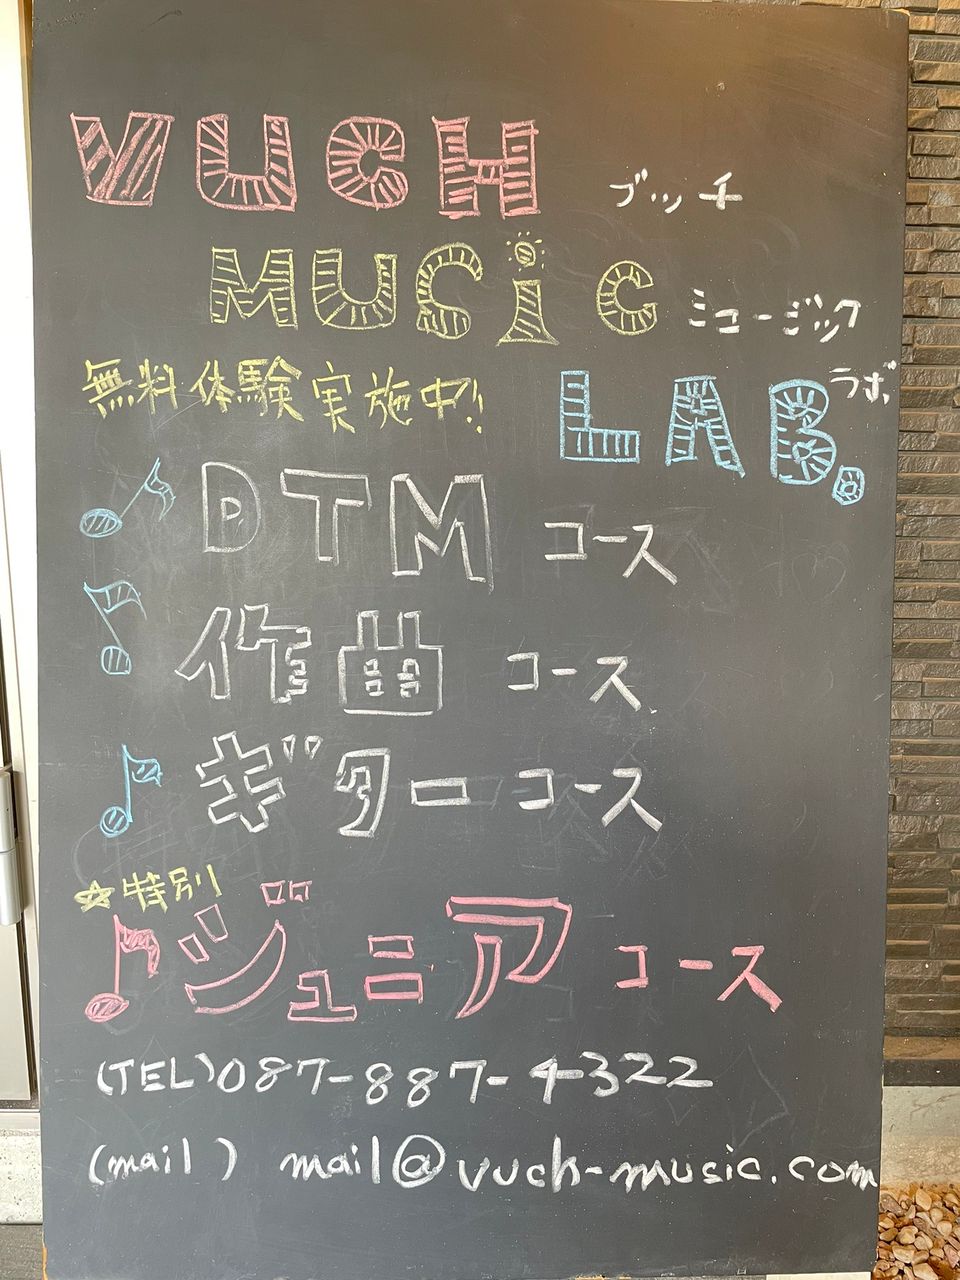 VUCH ブッチ
MUSiC ミュージック
無料体験実施中!! LAB. ラボ
DTM コース
作曲 コース
ギター コース
☆特別
ジュニア コース
(TEL) 087-887-4322
(mail) mail@vuch-music.com